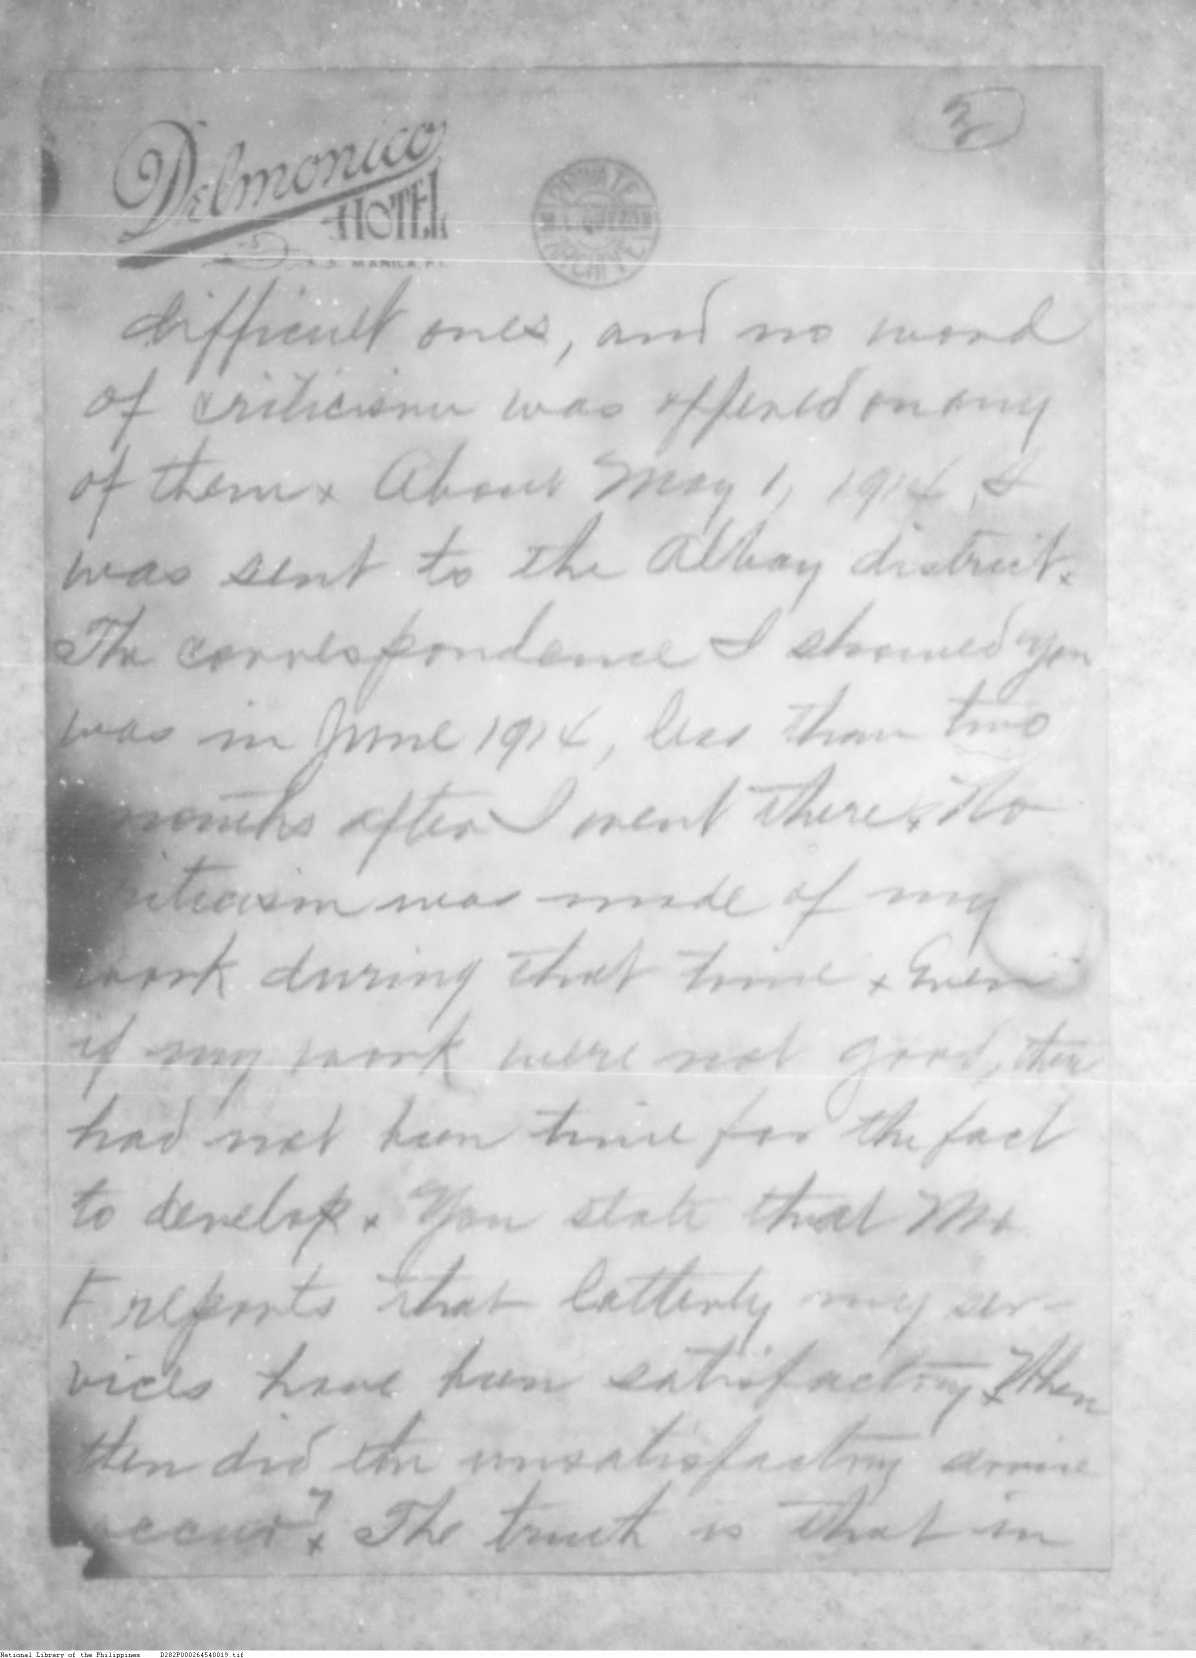 3
Delmonico
HOTEL
MANILA, P.I.
PRIVATE
M. L. QUEZON
ARCHIVE
difficult ones, and no word
of criticism was offered on any
of themx About May 1, 1914, I
was sent to the Albay districtx
The correspondence I showed you
was in June 1914, less than two
months after I went therex No
criticism was made of my
work during that time x Even
if my work were not good, there
had not been time for the fact
to develop x You state that Mr
F reports that latterly my ser-
vices have been satisfactoryx When
then did the unsatisfactory service
occur?x The truth is that in
National Library of the Philippines D282P000264540019.tif